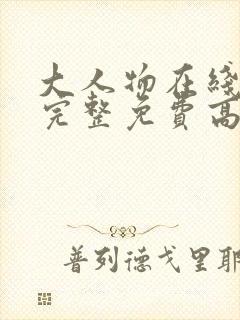 大人物在綫
完整免費高
普列德戈里耶